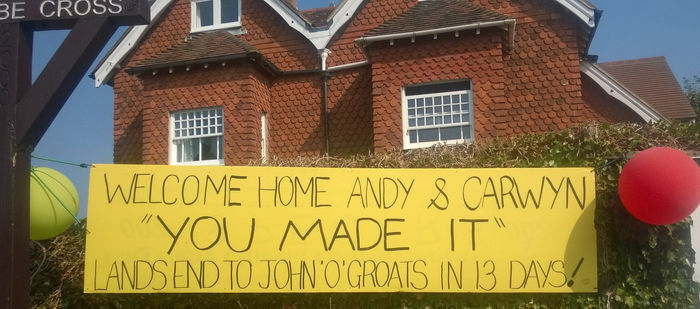 BE CROSS
WELCOME HOME ANDY & CARWYN
"YOU MADE IT"
LANDS END TO JOHN 'O' GROATS IN 13 DAYS!